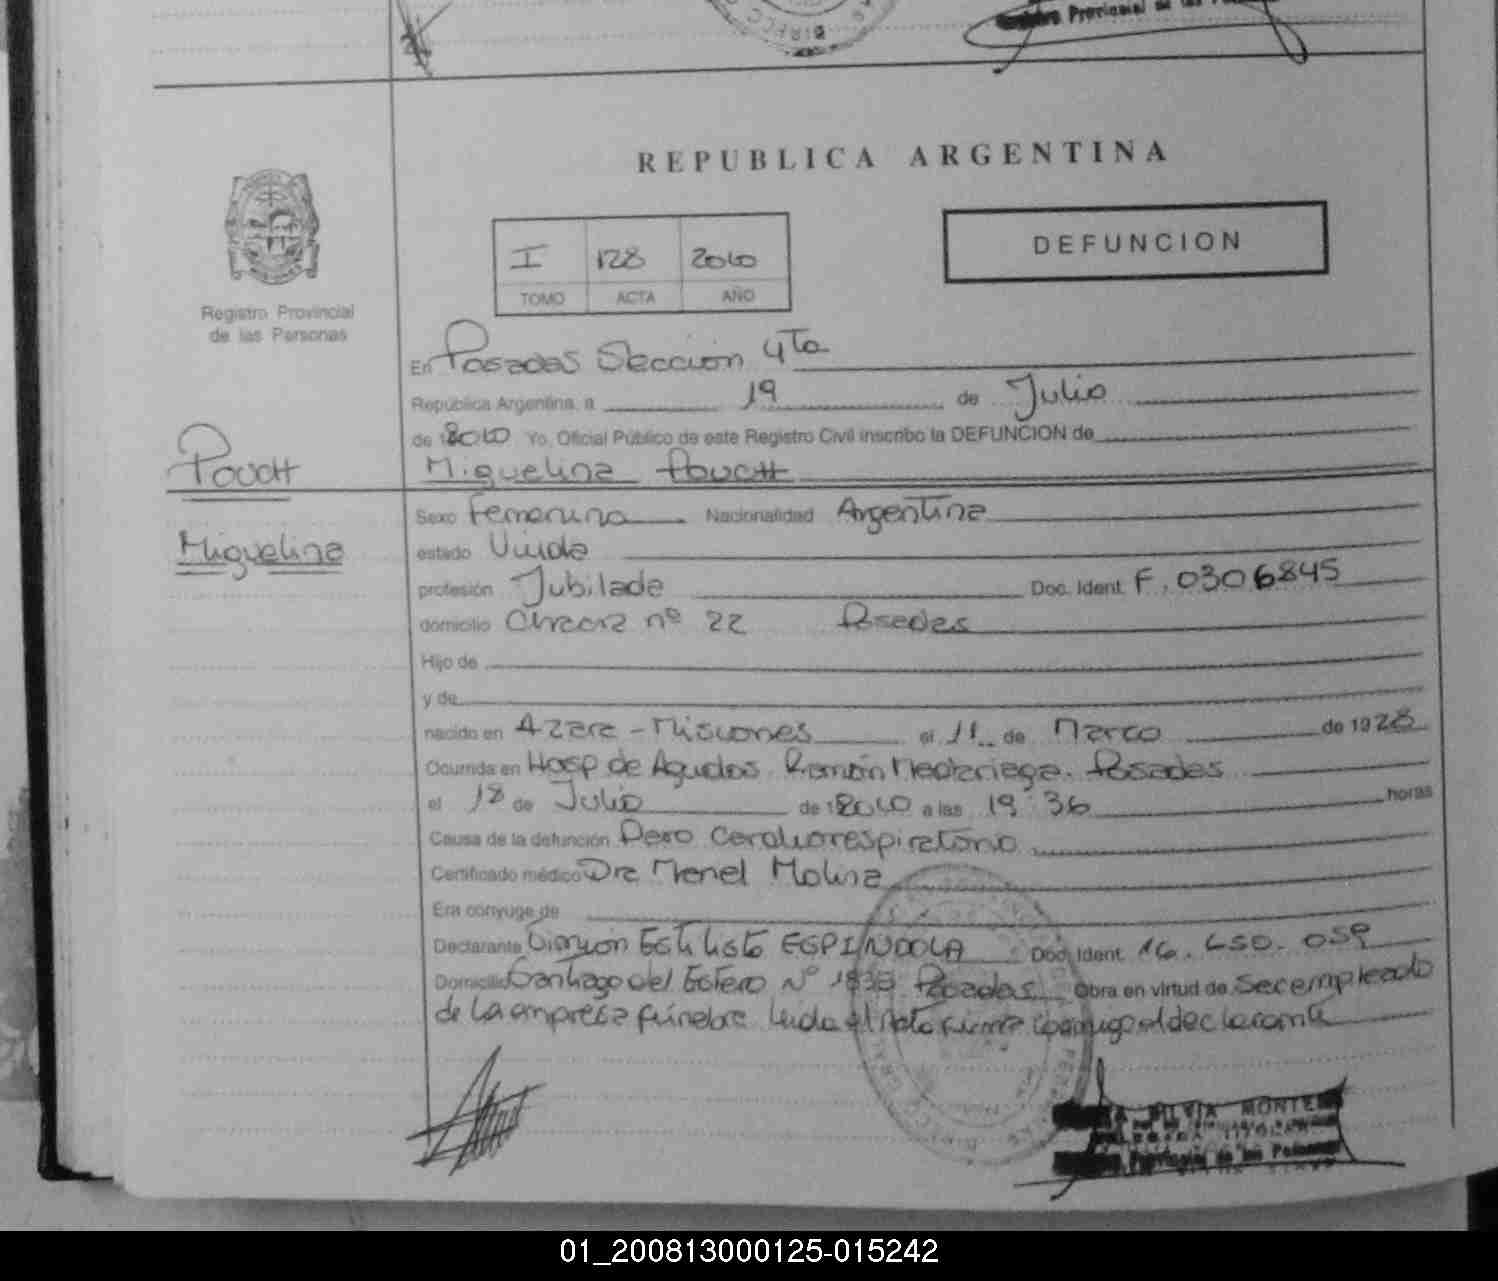 Registro Provincial de las
REPUBLICA ARGENTINA
I 128 2010
TOMO ACTA AÑO
DEFUNCION
Registro Provincial
de las Personas
En Posadas Sección 4ta
República Argentina, a 19 de Julio
de 2010 Yo, Oficial Público de este Registro Civil inscribo la DEFUNCION de
Miguelina Pouctt
Pouctt
Miguelina
Sexo Femenino Nacionalidad Argentina
estado Viuda
profesión Jubilada Doc. Ident. F. 0306845
domicilio Chacra nº 22 Posadas
Hijo de
y de
nacido en Azara - Misiones el 11 de Marzo de 1928
Ocurrida en Hosp de Agudos Ramón Madariaga. Posadas
el 18 de Julio de 2010 a las 19:36 horas
Causa de la defunción Paro Cardiorespiratorio
Certificado médico Dra Molina
Era cónyuge de
Declarante ESPINDOLA Doc. Ident. 16. 059
Domicilio Santiago del Estero Nº Posadas Obra en virtud de Ser empleado
de la empresa fúnebre Leida el Acta firma conmigo el declarante
SILVIA MONTE
Provincial de las Personas
01_200813000125-015242